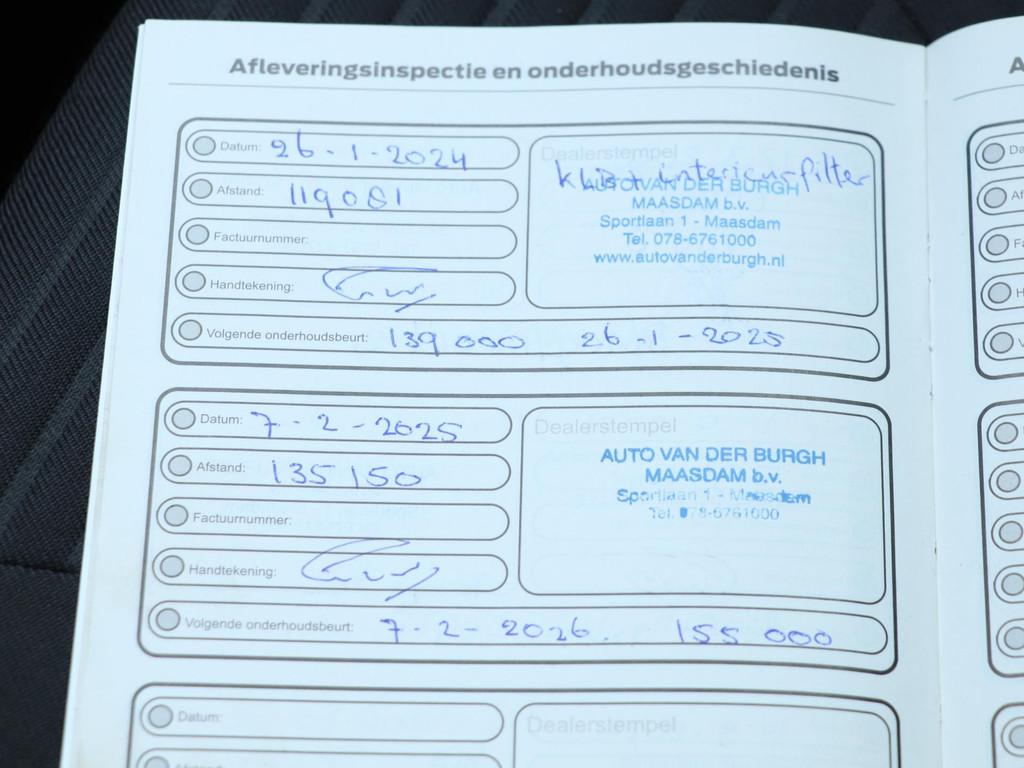 Afleveringsinspectie en onderhoudsgeschiedenis
Datum: 26-1-2024
Afstand: 119081
Factuurnummer:
Handtekening:
Volgende onderhoudsbeurt: 139 000 26-1-2025
Dealerstempel
interieurfilter
AUTO VAN DER BURGH
MAASDAM b.v.
Sportlaan 1 - Maasdam
Tel. 078-6761000
www.autovanderburgh.nl
Datum: 7-2-2025
Afstand: 135 150
Factuurnummer:
Handtekening:
Volgende onderhoudsbeurt: 7-2-2026. 155 000
Dealerstempel
AUTO VAN DER BURGH
MAASDAM b.v.
Sportlaan 1 - Maasdam
Tel. 078-6761000
Datum:
Dealerstempel